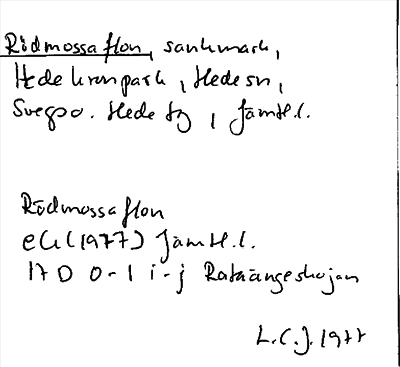 Rödmossaflon, sankmark,
Hede kronpark, Hede sn,
Svegs o. Hede tg, Jämtl. l.
Rödmossaflon
ek (1977) Jämtl. l.
17 D 0-1 i-j Rataängeskojan
L.C.J. 1977